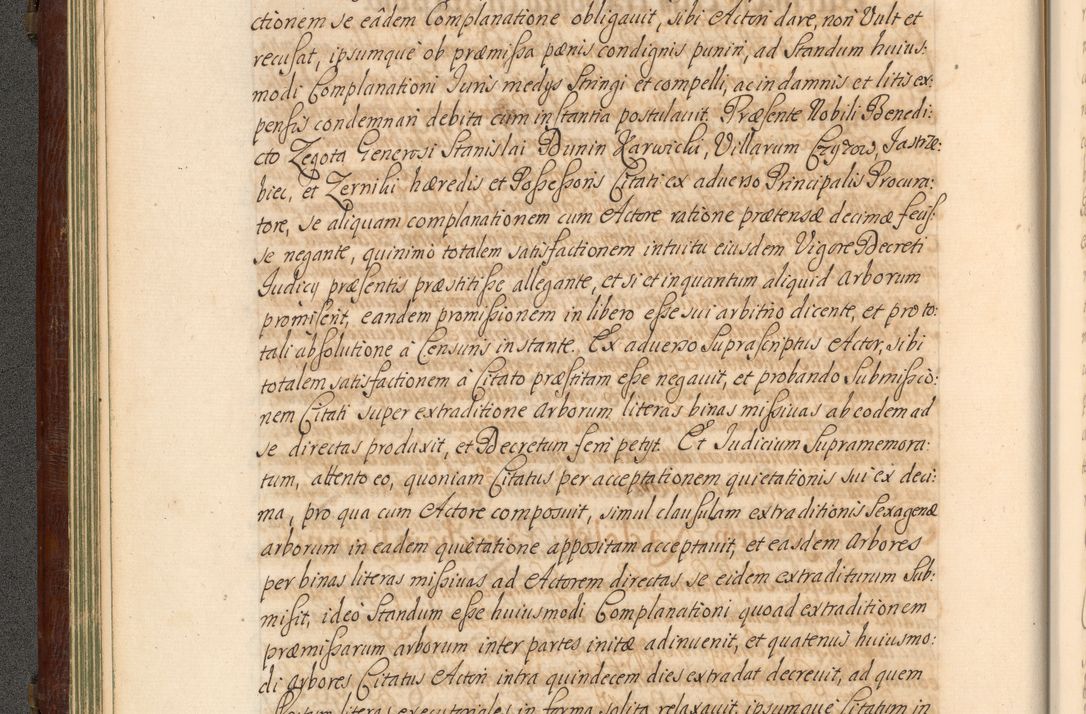 ctionem se eâdem Complanatione obligavit, sibi Actori dare, non Vult et
recusat, ipsumque ob præmissa pænis condignis puniri, ad Standum huius:
modi Complanationi Juris medys Stringi et compelli, ac in damnis et litis ex:
pensis condemnari debita cum instantia postulavit. Præsente Nobili Benedi:
cto Zegota Generosi Stanislai Dunin Karwicki, Villarum Czyzow, Jastrzę:
biec, et Zerniki hæredis et Possessoris Citati ex adverso Principalis Procura:
tore, se aliquam complanationem cum Actore ratione prætensæ decimæ fecis:
se negante, quinimò totalem satisfactionem intuitu eiusdem Vigore Decreti
Judicy præsentis præstitisse allegante, et si et inquantum aliquid arborum
promiserit, eandem promissionem in libero esse sui arbitrio dicente, et pro to:
tali absolutione à Censuris instante. Ex adverso Suprascriptus Actor, sibi
totalem satisfactionem à Citato præstitam esse negavit, et probando Submissio:
nem Citati super extraditione arborum literas binas missivas ab eodem ad
se directas produxit, et Decretum ferri petyt. Et Judicium Supramemora:
tum, attento eo, quoniam Citatus per acceptationem quietationis sui ex deci:
ma, pro qua cum Actore composuit, simul clausulam extraditionis Sexagenæ
arborum in eadem quietatione appositam acceptavit, et easdem Arbores
per binas literas missivas ad Actorem directas se eidem extraditurum Sub:
misit, ideò Standum esse huiusmodi Complanationi quoad extraditionem
præmissarum arborum inter partes initæ adinvenit, et quatenus huiusmo:
di arbores Citatus Actori intra quindecem dies extradat decrevit, ad quem
literas executoriales in forma solita relaxavit, ipsumque Citatum in